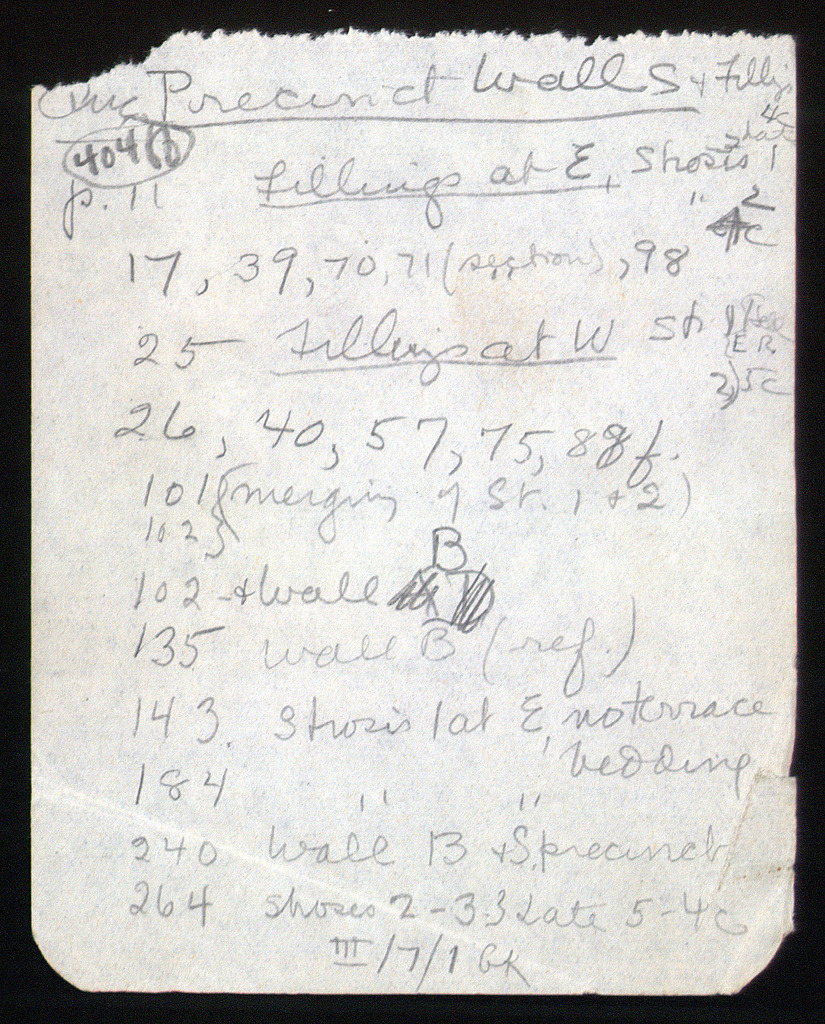 Precinct Wall S + Fillings
4c
404
p. 11 Fillings at E, Strosis 1
" 2
17, 39, 70, 71 (section), 98
25 Fillings at W St. 1)
E R.
2) 5c
26, 40, 57, 75, 88f.
101 } (merging of St. 1 + 2)
102 }
102 + Wall B
135 wall B (ref.)
143. Strosis 1 at E, no terrace
bedding
184 " "
240 Wall B + S. precinct
264 Stroses 2 - 3. 3 Late 5-4c
III/7/1 GK